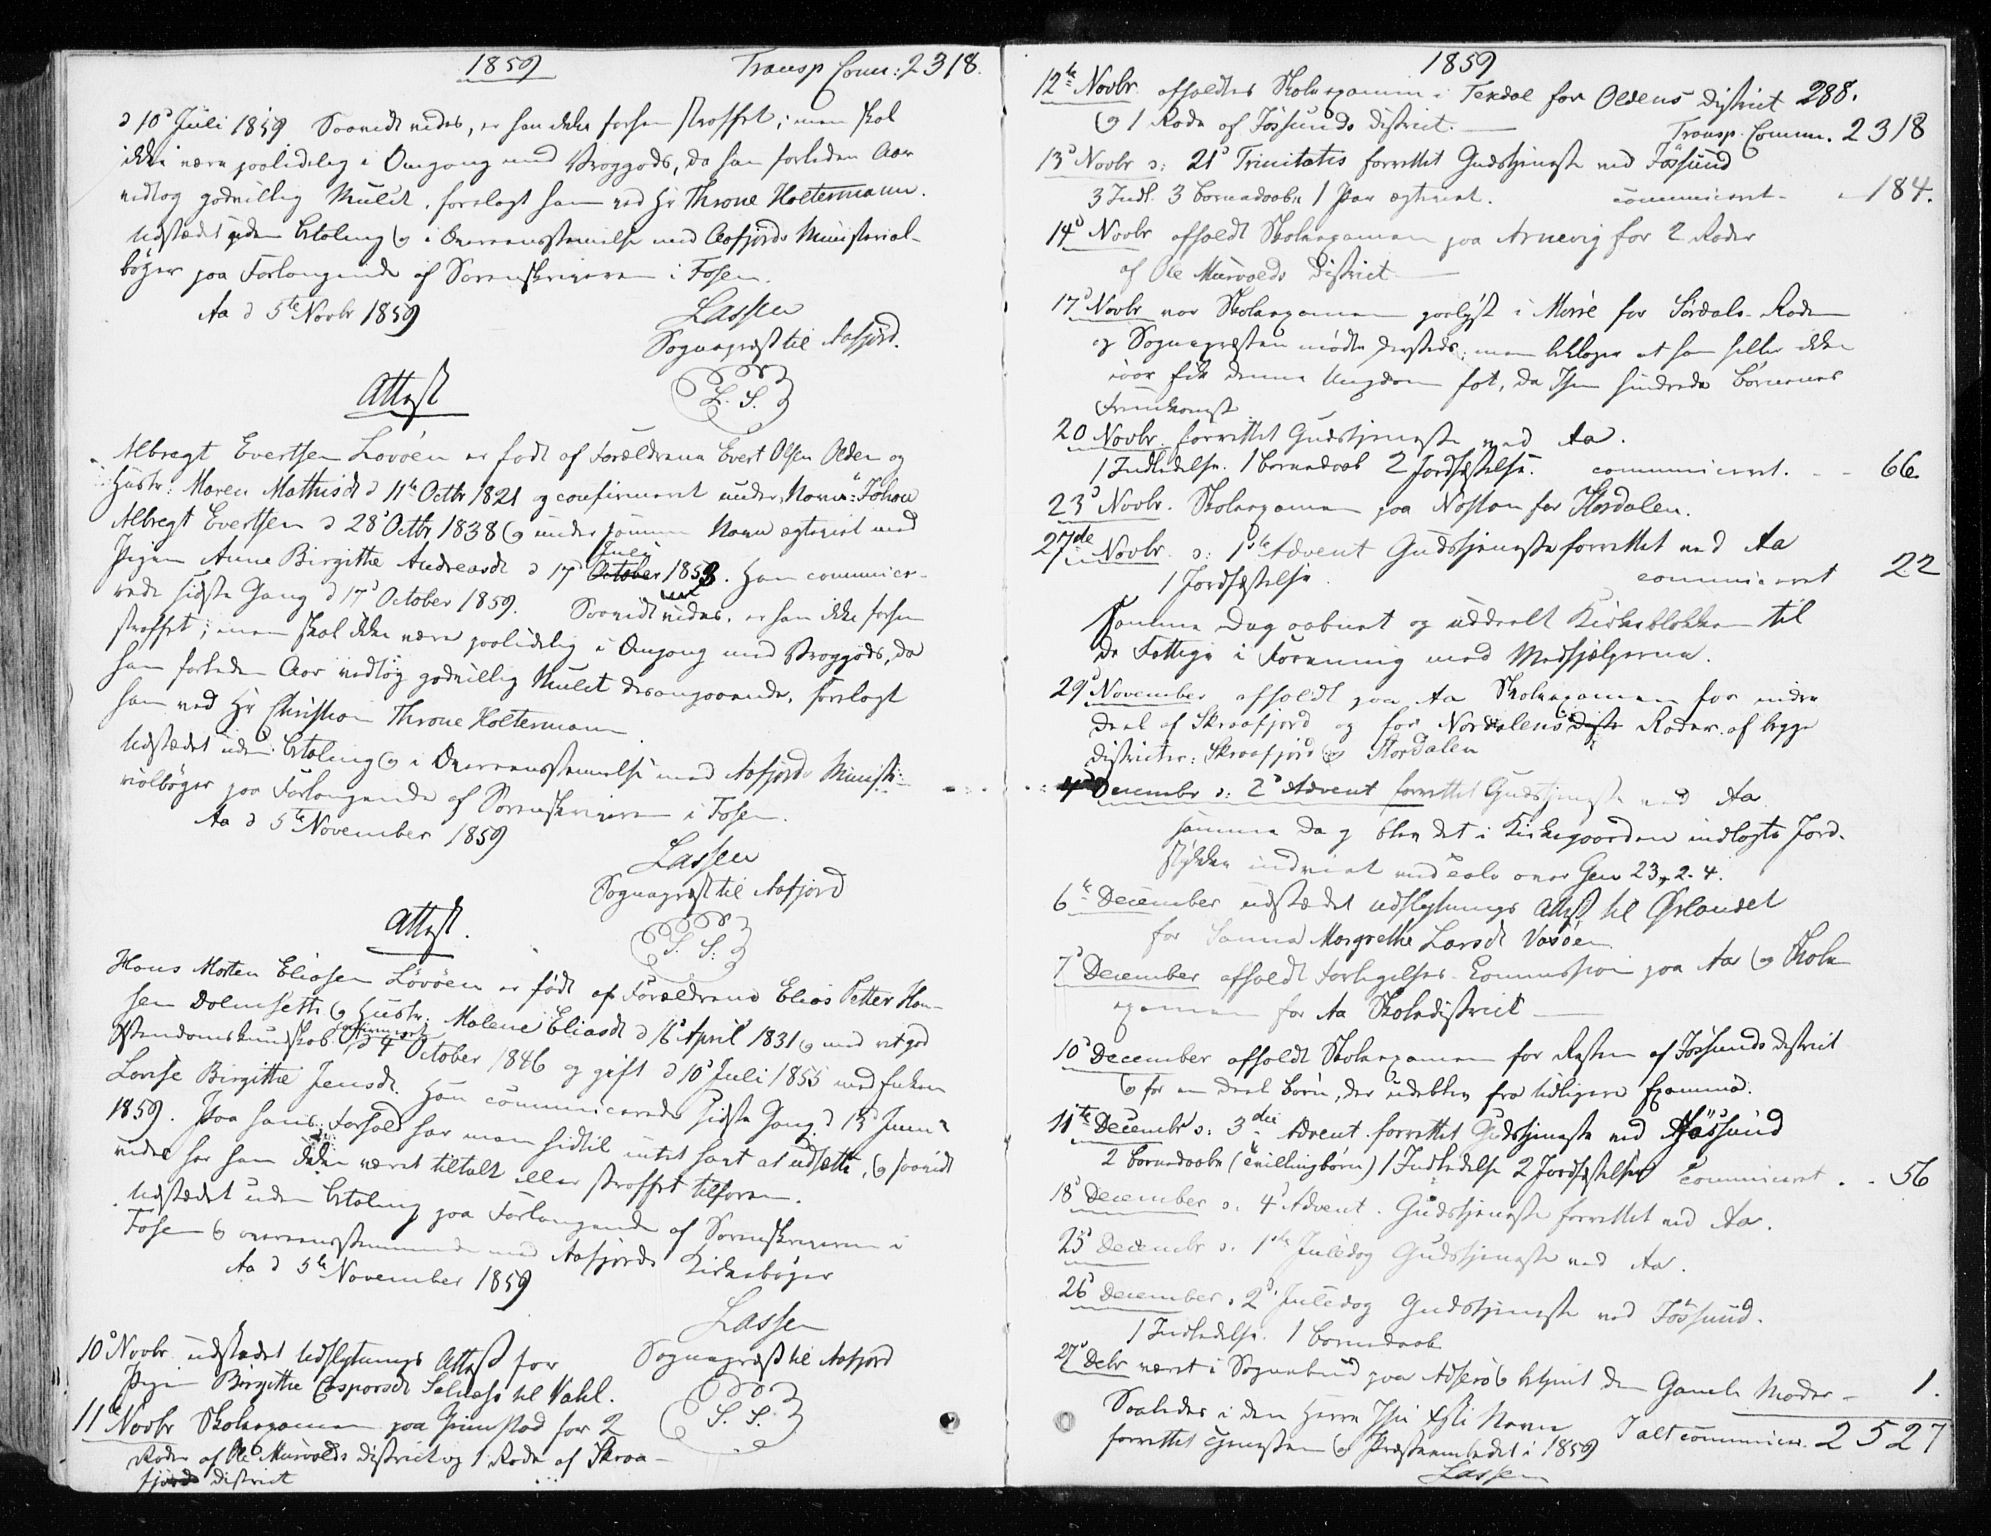 1859 Transp Comm: 2318.
d 10d Juli 1859 Saavidt vides, er han ikke forhen straffet; men skal
ikke være paalidelig i Omgang med Vraggods, da han forleden Aar
vedtog godvillig Mulct, forelagt ham ved Hr Throne Holtermann.
Udstædet uden Betaling og i Overensstemmelse med Aafjords Ministerial-
bøger paa Forlangende af Sorenskriveren i Fosen.
Aa d 5te Novbr 1859
Lassen
Sognepræst til Aafjord.
L. S.
Attest
Albregt Evertsen Lovöen er født af Forældrene Evert Olsen Olden og
Hustr: Maren Mathisdt d 11te Octbr 1821 og confirmeret under Navn: Johan
Albregt Evertsen d 28d Octbr 1838 og under samme Navn ægteviet med
Pigen Anne Birgitha Andreasdt d 17d October Juli 1853. Han communice-
rede sidste Gang d 17d October 1859. Saavidt vides, er han ikke forhen
straffet; men skal ikke være paalidelig i Omgang med Vraggods, da
han forleden Aar vedtog godvillig Mulct desangaaende, forelagt
ham ved Hr Christian Throne Holtermann
Udstædet uden Betaling og i Overensstemmelse med Aafjords Ministe-
rialbøger paa Forlangende af Sorenskriveren i Fosen.
Aa d 5te November 1859
Lassen
Sognepræst til Aafjord
L. S.
Attest.
Hans Morten Eliasen Lövöen er født af Forældrene Elias Petter Han-
sen Dolmseth og Hustr: Malene Eliasdt d 16d April 1831 og med ret god
Christendomskundskab confirmeret d 4d October 1846 og gift d 10d Juli 1855 med Enken
Lovise Birgitha Jensdt. Han communicerede sidste Gang d 13d Juni
1859. Paa hans Forhold har man hidtil intet havt at udsætte, og saavidt
vides har han ikke været tiltalt eller straffet tilforn.
Udstædet uden Betaling paa Forlangende af Sorenskriveren i
Fosen og overensstemmende med Aafjords Kirkebøger
Aa d 5te November 1859
Lassen
Sognepræst til Aafjord
L. S.
10d Novbr udstædet Udflytnings Attest for
Pigen Birgitha Caspersdt Selnæss til
11te Novbr Skoleexamen paa Grimstad for 2
Roder af Ole Murvolds District og 1 Rode af Skraa-
fjords District
1859
12te Novbr. afholdtes Skoleexamen i Texdal for Oldens District 288.
og 1 Rode af Jössunds District. Transp. Commn. 2318
13d Novbr s: 21d Trinitatis forrettet Gudstjeneste ved Jössund
3 Indl. 3 Barnedaabe 1 Par ægteviet. communiceret - 184.
14d Novbr afholdt Skoleexamen paa Arnevig for 2 Roder
af Ole Murvolds District
17d Novbr var Skoleexamen paalyst i Morre for Sördals-Roden
og Sognepræsten mødte dersteds; men beklager at han heller ikke
iaar fik denne Ungdom fat, da Isen hindrede Börnenes
Fremkomst
20 Novbr. forrettet Gudstjeneste ved Aa.
1 Indledelse. 1 Barnedaab 2 Jordfæstelse. communiceret. - - 66
23d Novbr. Skoleexamen paa Nostan for Stordalen.
27de Novbr s: 1ste Advent Gudstjeneste forrettet ved Aa
1 Jordfæstelse. communiceret 22
Samme Dag aabnet og uddeelt Kirkeblokken til
de Fattige i Forening med Medhjælperne.
29d November afholdt paa Aa Skoleexamen for nedre
Deel af Skraafjord og for Nordalens Distr Roder af begge
Districter: Skraafjord og Stordalen
4de December s: 2d Advent forrettet Gudstjeneste ved Aa
samme Dag blev det i Kirkegaarden indlagte Jord-
stykke indviet med Tale over Gen 23, 2-4.
6te December udstædet Udflytnings Attest til Ørlandet
for Sanna Margrethe Larsdt Vasöen
7d December afholdt Forligelses-Commission paa Aa og Skole
examen for Aa Skoledistrict
10d December afholdt Skoleexamen for Resten af Jössunds District
og for en Deel Börn, der udebleve fra tidligere Examina.
11te December s: 3die Advent forrettet Gudstjeneste ved Jössund
2 Barnedaabe (Tvillingbörn) 1 Indledelse 2 Jordfæstelser communiceret. - 56
18d December s. 4d Advent. Gudstjeneste forrettet ved Aa.
25d Decembr s. 1ste Juledag Gudstjeneste ved Aa.
26d December. 2d Juledag Gudstjeneste ved Jössund.
1 Indledelse. 1 Barnedaab
27d Debr været i Sognebud paa Adserö betjent den Gamle Moder - 1.
Saaledes i den Herre Jesu Christi Navn I alt communicer. 2527
forrettet Tjenesten og Præsteembedet i 1859
Lassen